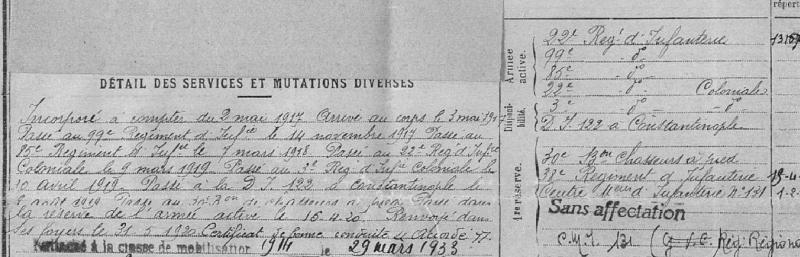 DÉTAIL DES SERVICES ET MUTATIONS DIVERSES
Incorporé à compter du 2 mai 1917 Arrivé au corps le 3 mai 1917
Passé au 99e Régiment d'Infrie le 14 novembre 1917 Passé au
85e Régiment d'Infrie le 7 mars 1918 Passé au 22e Reg d'Infrie
Coloniale le 9 mars 1919 Passé au 3e Reg d'Infrie Coloniale le
10 avril 1919 Passé à la D.I. 122 à Constantinople le
août 1919 Passé au 30e Bon de Chasseurs à pied Passé dans
la réserve de l'armée active le 15.4.20. Renvoyé dans
ses foyers le 31.5.1920 Certificat de bonne conduite accordé
à la classe de mobilisation 1914 le 29 mars 1933
Armée active.
22e Regt d'Infanterie
99e - do -
85e - do -
22e - do - Coloniale
3e - do - - do -
Disponibilité.
D.I 122 à Constantinople
1re réserve.
30e Bon Chasseurs à pied
Régiment d'Infanterie
Centre Mobr d'Infanterie No 131
Sans affectation
C.M.I. 131
répert